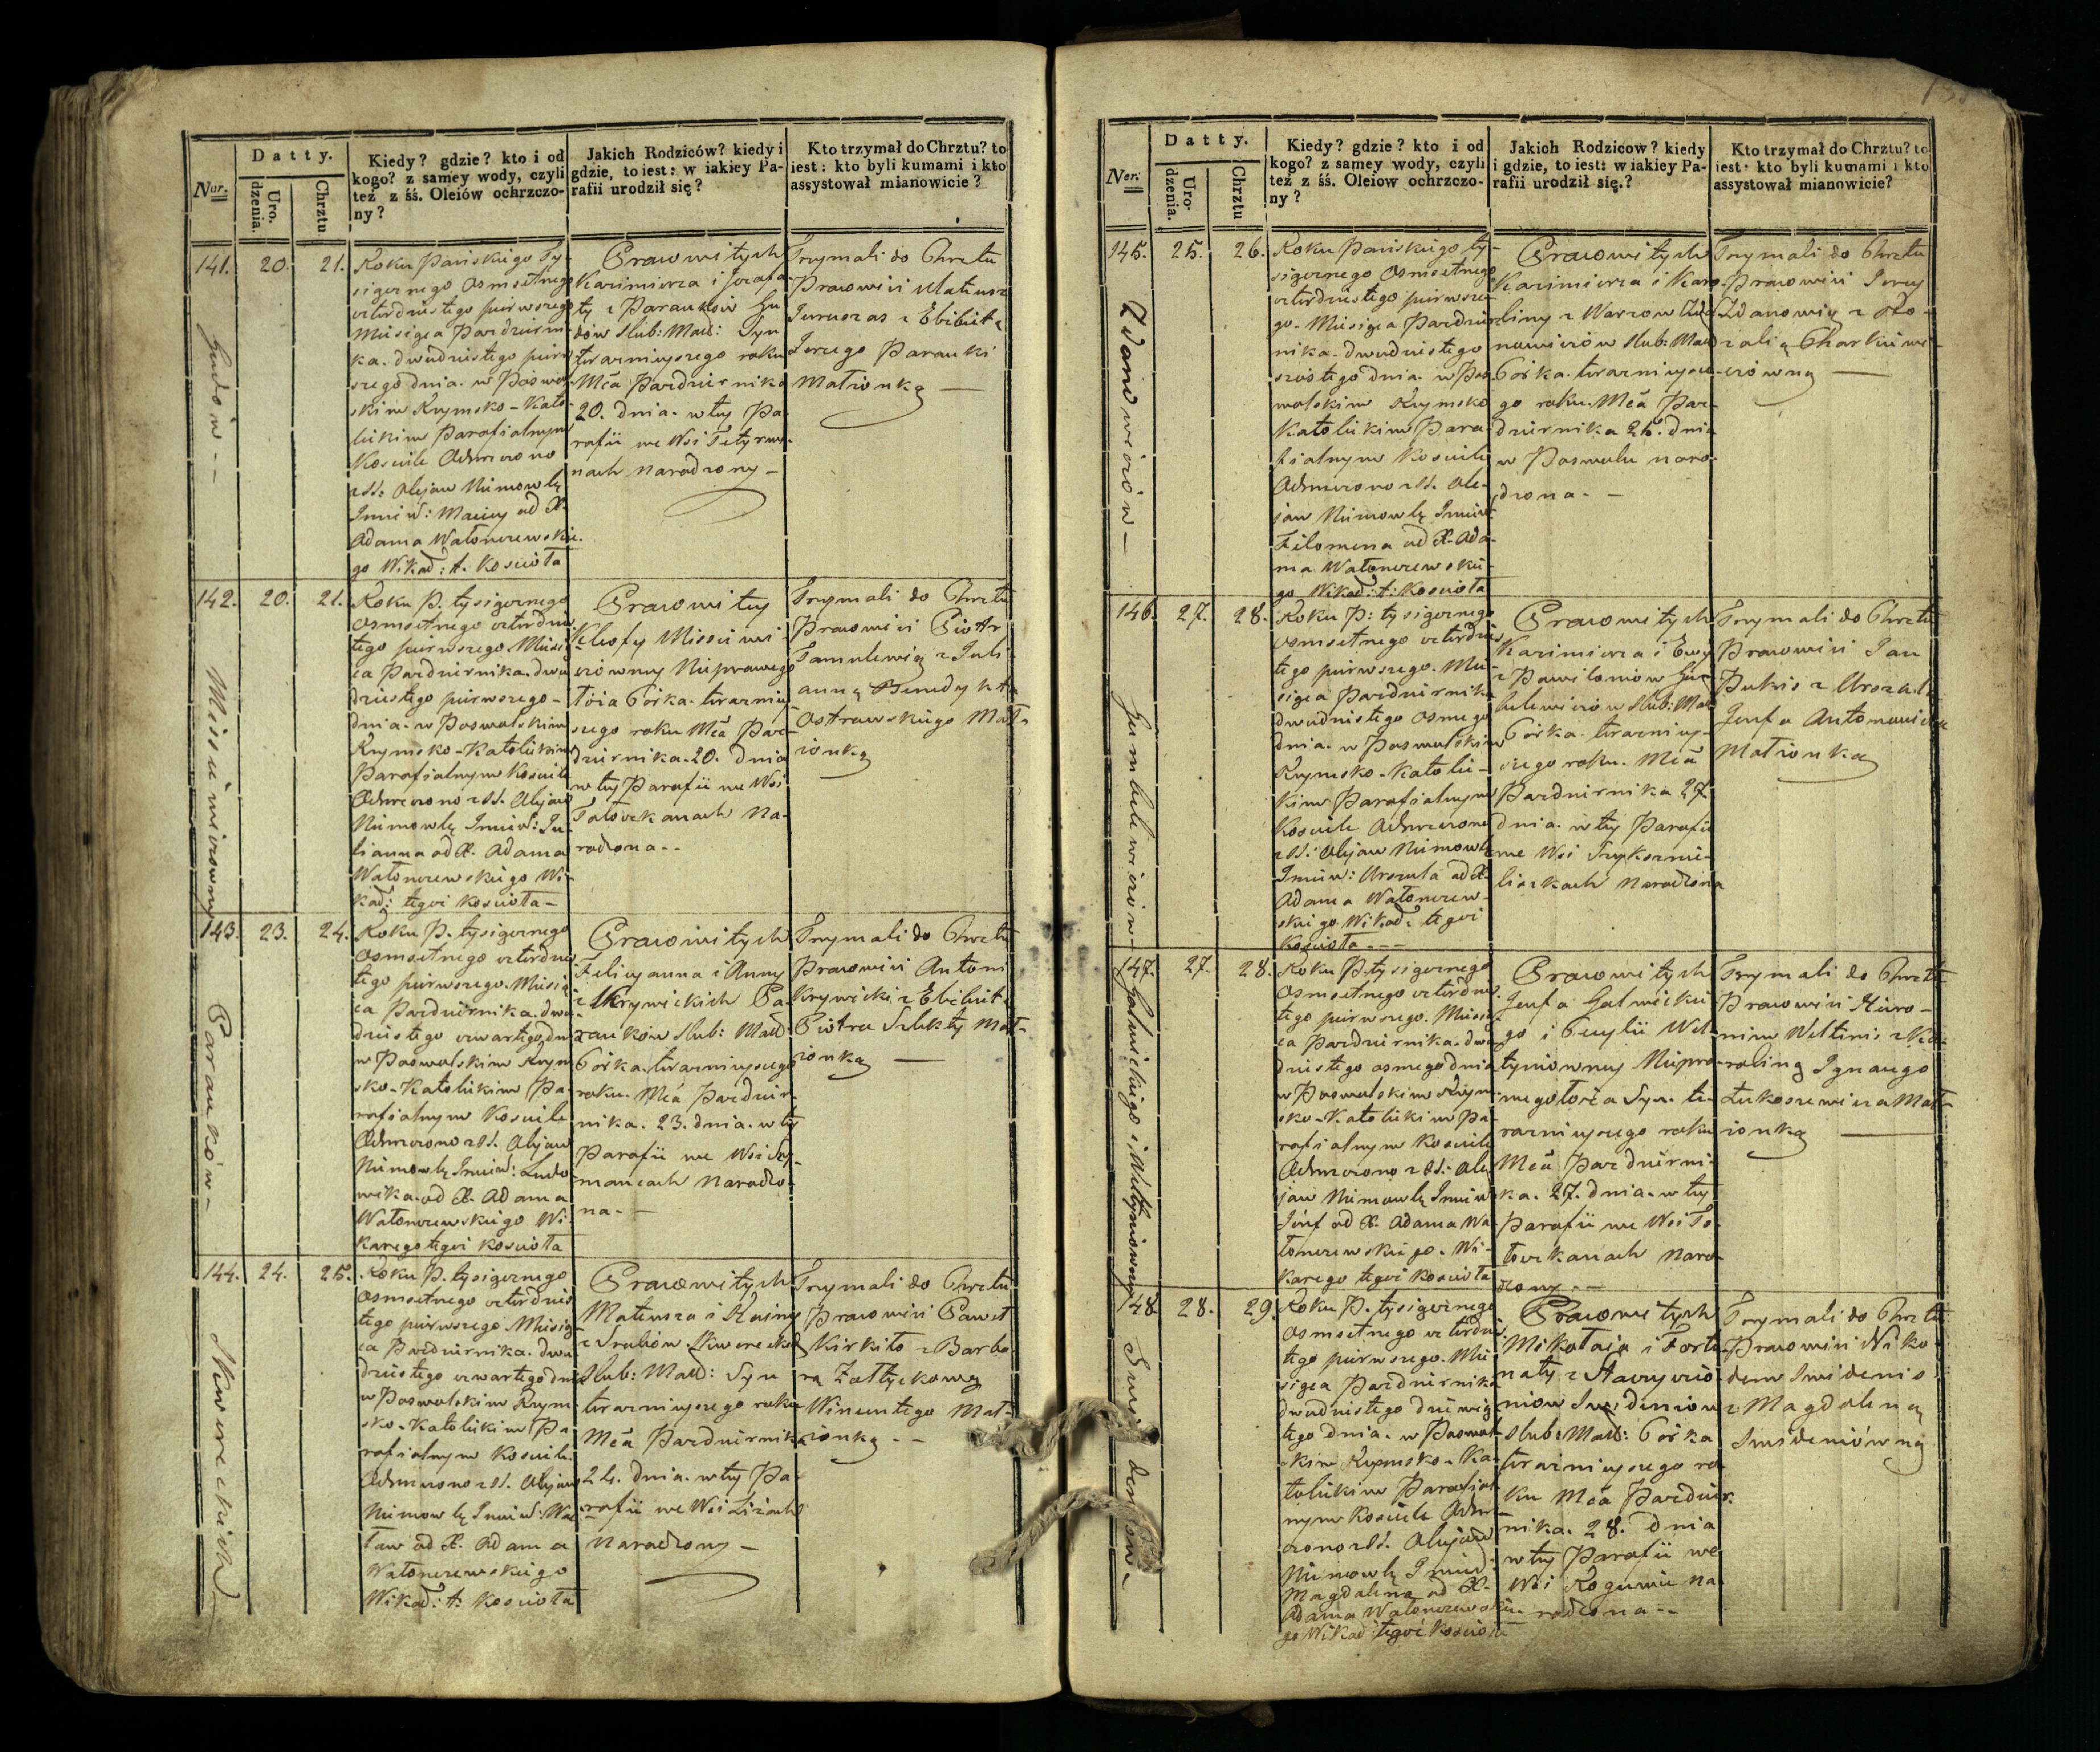 Datty.
Kiedy? gdzie? kto i od
kogo? z samey wody, czyli
też z śś. Oleiów ochrzczo-
ny?
Jakich Rodziców? kiedy i
gdzie, to iest: w iakiey Pa-
rafii urodził się?
Kto trzymał do Chrztu? to
iest: kto byli kumami i kto
assystował mianowicie?
Ner.
Uro-
dzenia.
Chrztu
141.
20.
21.
Roku Pańskiego Ty-
siącznego Osmsetnego
czterdziestego pierwszego
Miesiąca Październi-
ka. dwudziestego pierw
szego dnia. w Poswol-
skim Rzymsko-Kato-
lickim Parafialnym
Kościele Ochrzczono
z SS. Olejow Niemowlę
Imieniem: Maciey od X.
Adama Wałonczewskie-
go Wikar: t. Kościoła
Prawowitych
Kazimierza i Jozefa
ty z Parauków Gu
dów Slub: Małż: Syn
teraznieyszego roku
Mca Października
20. dnia. w tey Pa
rafii we Wsi Tetyrwi-
nach narodzony —
Trzymali do Chrztu
Prawowici Mateusz
Elżbietą
Jerzego Parauki
Małżonką —
142.
20.
21.
Roku P. tysiącznego
Osmsetnego czterdzies
tego pierwszego Miesią
ca Października. dwu
dziestego pierwszego-
dnia. w Poswolskim
Rzymsko-Katolickim
Parafialnym Kościele
Ochrzczono z SS. Olejow
Niemowlę Imieniem: Ju-
lianna od X. Adama
Wałonczewskiego Wi-
kar: tegoż Kościoła —
Prawowitey
czówney Nieprawego
Łoża Córka. terazniey
szego roku Mca Paź-
dziernika. 20. dnia
w tey Parafii we Wsi
Tołoczkanach Na-
rodzona --
Trzymali do Chrztu
Prawowici Piotr
Tamulewicz z Juli
anną Benedykta
Ostrowskiego Mał-
żonką
143.
23.
24.
Parauków —
Roku P. tysiącznego
Osmsetnego czterdzies
tego pierwszego. Miesią
ca Października. dwu
dziestego czwartego dn
w Poswolskim Rzym
sko-Katolickim Pa-
rafialnym Kościele
Ochrzczono z SS. Olejow
Niemowlę Imieniem: Ludo
wika. od X. Adama
Wałonczewskiego Wi-
karego tegoż Kościoła
Prawowitych
Felicyanna i Anny
z Krywickich Pa-
rauków Slub: Małż:
Córka. teraznieyszego
roku. Mca Paździer
nika. 23. dnia. w tey
Parafii we Wsi
narodzo-
na. —
Trzymali do Chrztu
Prawowici Antoni
Krywicki z Elżbietą
Piotra Szlekty Mał-
żonką —
144.
24.
25.
Roku P. tysiącznego
Osmsetnego czterdzies
tego pierwszego Miesią
ca Października. dwu
dziestego czwartego dn
w Poswolskim Rzym
sko-Katolickim Pa
rafialnym Kościele.
Ochrzczono z SS. Olejow
Niemowlę Imieniem: Wac
ław od X. Adama
Wałonczewskiego
Wikar: t. Kościoła
Prawowitych
Mateusza i
Slub: Małż: Syn
teraznieyszego roku
Mca Października
24. dnia. w tey Pa-
rafii we Wsi
Narodzony —
Trzymali do Chrztu
Prawowici Paweł
Kirkiło z Barba
rą
Wincentego Mał-
żonką --
Datty.
Kiedy? gdzie? kto i od
kogo? z samey wody, czyli
też z śś. Oleiow ochrzczo-
ny?
Jakich Rodzicow? kiedy
i gdzie, to iest: w iakiey Pa-
rafii urodził się.?
Kto trzymał do Chrztu? to
iest: kto byli kumami i kto
assystował mianowicie?
Ner.
Uro-
dzenia.
Chrztu
145.
25.
26.
Roku Pańskiego ty-
siącznego Osmsetnego
czterdziestego pierwsze-
go. Miesiąca Paździer
nika. dwudziestego
szóstego dnia. w Pos
wolskim Rzymsko
Katolickim Para-
fialnym Kościele
Ochrzczono z SS. Ole-
jow Niemowlę Imieniem:
Filomena od X. Ada-
ma Wałonczewskie-
go Wikar: t. Kościoła
Prawowitych
Kazimierza i Karo
liny z
Slub: Małż:
Córka. teraznieysze-
go roku. Mca Paź-
dziernika 25. dnia
w Poswolu naro
dzona. —
Trzymali do Chrztu
Prawowici Jerzy
Zdanowicz z Ro-
zalią Charkiewi-
czówną —
146.
27.
28.
Gumbelewiczów —
Roku P: tysiącznego
Osmsetnego czterdzies
tego pierwszego. Mie-
siąca Października
dwudziestego Osmego
dnia. w Poswolskim
Rzymsko-Katolic-
kim Parafialnym
Kościele Ochrzczono
z SS. Olejow Niemowlę
Imieniem: Urszula od X.
Adama Wałonczew-
skiego. Wikar: tegoż
Kościoła ---
Prawowitych
Kazimierza i Ewy
z Pawiloniów Gum
belewiczów Slub: Małż:
Córka. teraznieysz-
szego roku. Mca
Października 27
dnia. w tey Parafii
we Wsi
narodzona
Trzymali do Chrztu
Prawowici Jan
Pukis z Urszulą
Jozefa Antonowicza
Małżonką
147.
27.
28.
Roku P. tysiącznego
Osmsetnego czterdzies
tego pierwszego. Miesią
ca Października. dwu
dziestego osmego dnia
w Poswolskim Rzym
sko-Katolickim Pa-
rafialnym Kościele
Ochrzczono z SS. Ole
jow Niemowlę Imieniem
Józef od X. Adama Wa
łonczewskiego. Wi-
karego tegoż Kościoła
Prawowitych
i Cecylii Wel-
tyniówney Niepra-
wego Łoża Syn. te-
raznieyszego roku
Mca Październi-
ka. 27. dnia. w tey
Parafii we Wsi To-
łoczkanach naro-
dzony. —
Trzymali do Chrztu
Prawowici Hiero-
nim Weltinis z Ka-
roliną Ignacego
Łukoszewicza Mał-
żonką —
148.
28.
29.
Roku P. tysiącznego
Osmsetnego czterdzies
tego pierwszego. Mie
siąca Października
dwudziestego dziewią
tego dnia. w Poswol
skim Rzymsko-Ka-
tolickim Parafial
nym Kościele Ochrz
czono z SS. Olejow
Niemowlę Imieniem:
Magdalena od X.
Adama Wałonczewskie-
go Wikar: tegoż Kościoła
Prawowitych
Mikołaia i Fortu
naty z
Slub: Małż: Córka
teraznieyszego ro-
ku Mca Paździer-
nika. 28. dnia
w tey Parafii we
Wsi Na-
rodzona --
Trzymali do Chrztu
Prawowici Niko-
dem Swidenis
z Magdaleną
Swideniówną